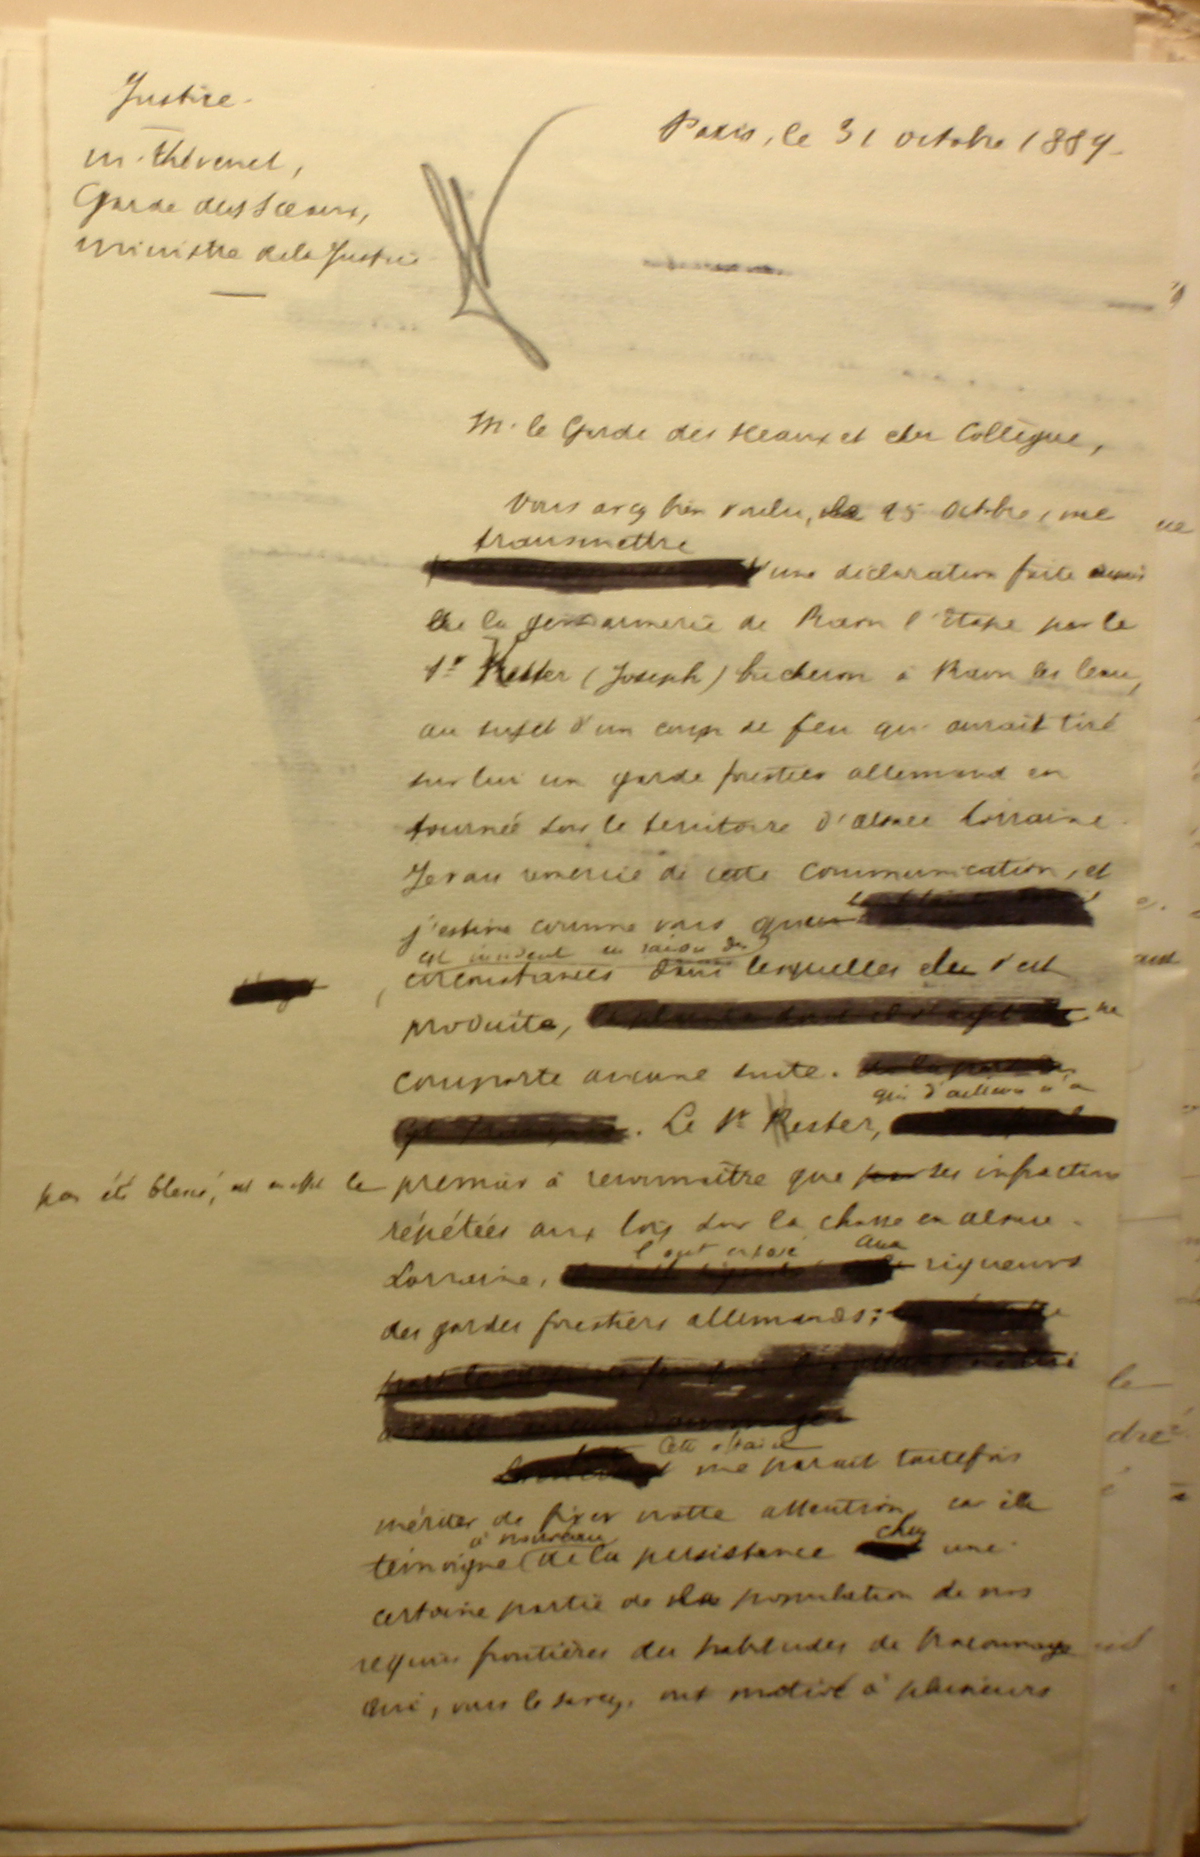 Justice.
M. Thévenet,
Garde des Sceaux,
Ministre de la Justice
Paris, le 31 octobre 1889.
M. le Garde des Sceaux et cher Collègue,
Vous avez bien voulu, le 25 octobre, me
transmettre
une déclaration faite devant
la gendarmerie de Raon l'Etape par le
Sr Kester (Joseph) bûcheron à Raon les leau,
au sujet d'un coup de feu qu'aurait tiré
sur lui un garde forestier allemand en
tournée sur le territoire d'Alsace Lorraine.
Je vous remercie de cette communication, et
j'estime comme vous que
cet incident en raison des
circonstances dans lesquelles elle s'est
produite, ne
comporte aucune suite.
qui d'ailleurs n'a
Le Sr Kester,
pas été blessé, est en effet le premier à reconnaître que par ses infractions
répétées aux lois sur la chasse en Alsace-
l'ont exposé aux
Lorraine, rigueurs
des gardes forestiers allemands;
Cette affaire
me parait toutefois
mériter de fixer votre attention, car elle
à nouveau
chez
témoigne de la persistance une
certaine partie de la population de nos
régions frontières des habitudes de braconnage
qui, vous le savez, ont motivé à plusieurs